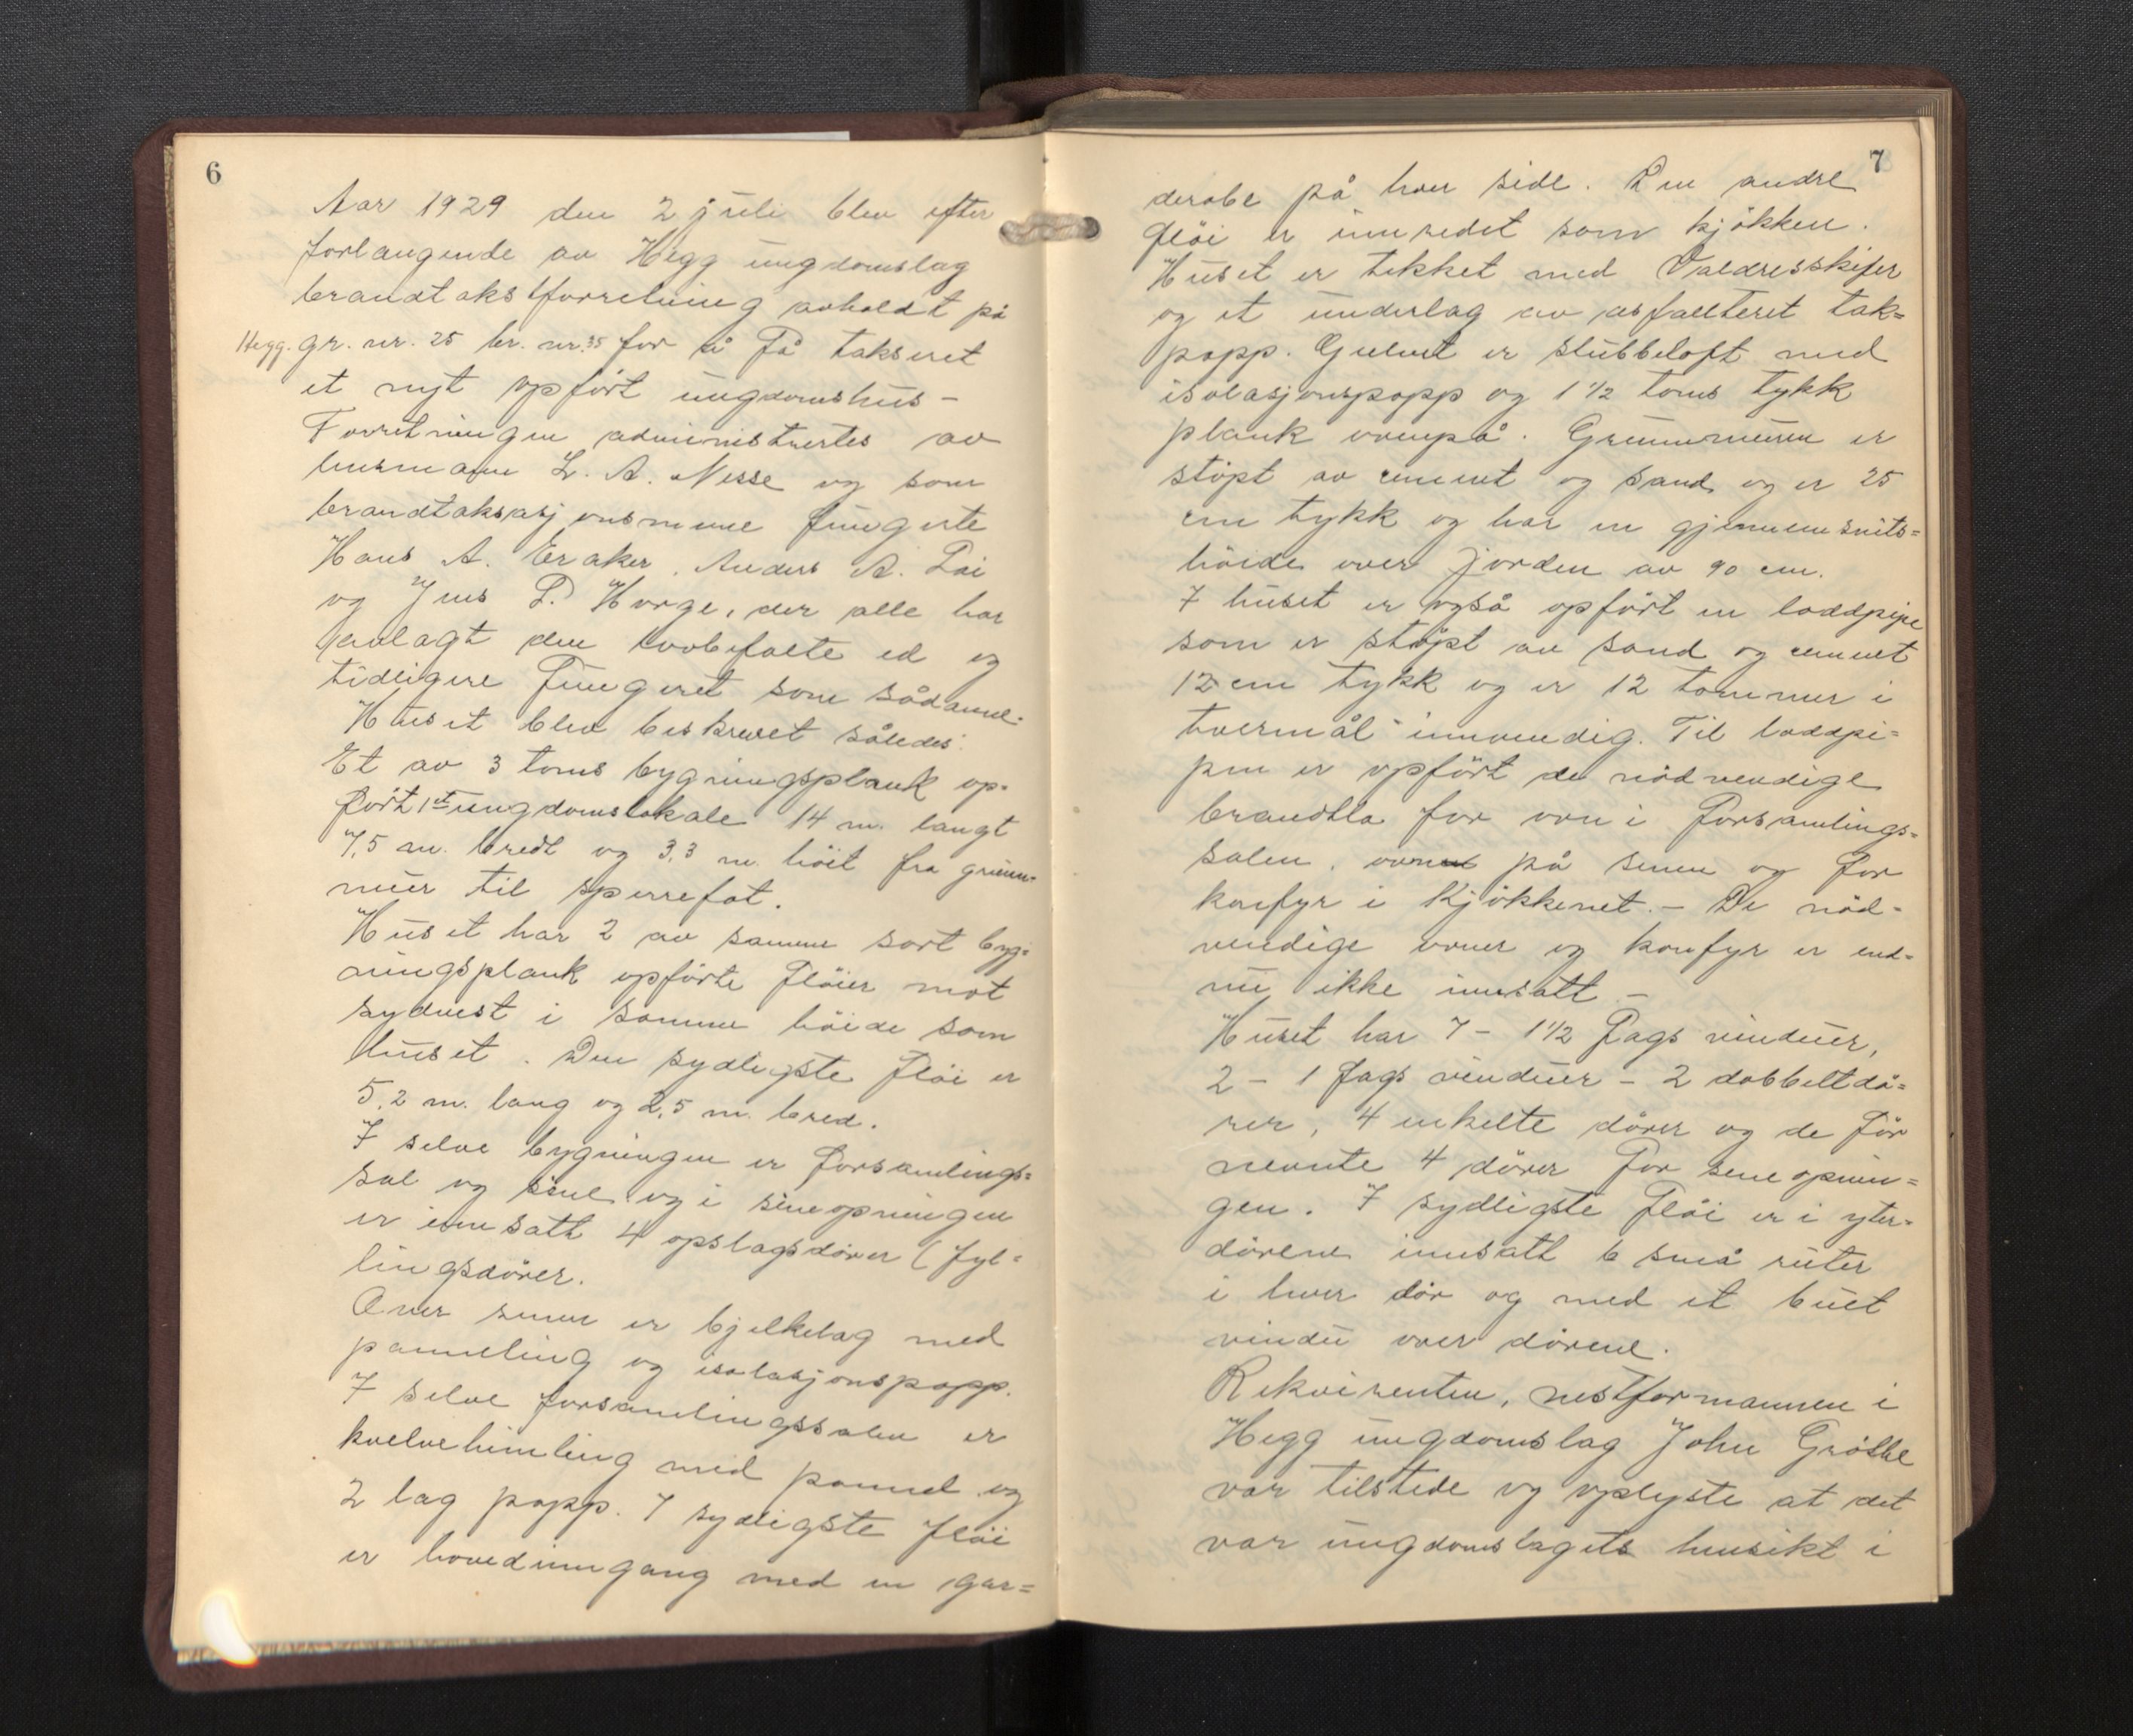 6
Aar 1929 den 2 juli blev efter
forlangende av Hegg ungdomslag
brandtakstforretning avholdt på
Hegg. gr. nr. 25 br. nr. 35 for å få takseret
et nyt opført ungdomshus –
Forretningen administrertes av
lensmann L. A. Nesse og som
brandtaksasjonsmenn fungerte
Hans A. Eraker, Anders A. Löi
og Jens P. Horge, der alle har
avlagt den lovbefalte ed og
tidligere fungeret som sådanne.
Huset blev beskrevet således:
Et av 3 toms bygningsplank op-
ført 1 et ungdomslokale 14 m. langt
7,5 m. bredt og 3,3 m. höit fra grunn-
mur til sperrefot.
Huset har 2 av samme sort byg-
ningsplank opförte flöier mot
sydvest i samme höide som
huset. Den sydligste flöi er
5,2 m. lang og 2,5 m. bred.
I selve bygningen er forsamlings=
sal og sene og i seneopningen
er innsatt 4 opslagsdörer (fyl=
lingsdörer.
Over senen er bjelkelag med
panneling og isolasjonspapp.
I selve forsamlingssalen er
kvelvehimling med pannel og
2 lag papp. I sydligste flöi
er hovedinngang med en gar=
7
derobe på hver side. Den andre
flöi er innredet som kjökken.
Huset er tekket med Valdresskifer
og et underlag av asfalteret tak=
papp. Gulvet er stubbeloft med
isolasjonspapp og 1 1/2 toms tykk
plank ovenpå. Grunnmuren er
stöpt av cement og sand og er 25
cm tykk og har en gjennemsnits=
höide over jorden av 90 cm.
I huset er også opfört en loddpipe
som er stöpt av sand og cement
12 cm tykk og er 12 tommer i
tvermål innvendig. Til loddpi=
pen er opfört de nödvendige
brandtla for ovn i forsamlings=
salen, ovnen på senen og for
komfyr i kjökkenet. – De nöd=
vendige ovner og komfyr er end=
nu ikke innsatt –
Huset har 7 – 1 1/2 fags vinduer,
2 – 1 fags vinduer – 2 dobbeltdö=
rer, 4 enkelte dörer og de för
nevnte 4 dörer for seneopnin=
gen. I sydligste flöi er i yter=
dörene innsatt 6 små ruter
i hver dör og med et buet
vindu over dörene.
Rekvirenten, nestformannen i
Hegg ungdomslag John Gröthe
var tilstede og oplyste at det
var ungdomslagets hensikt i